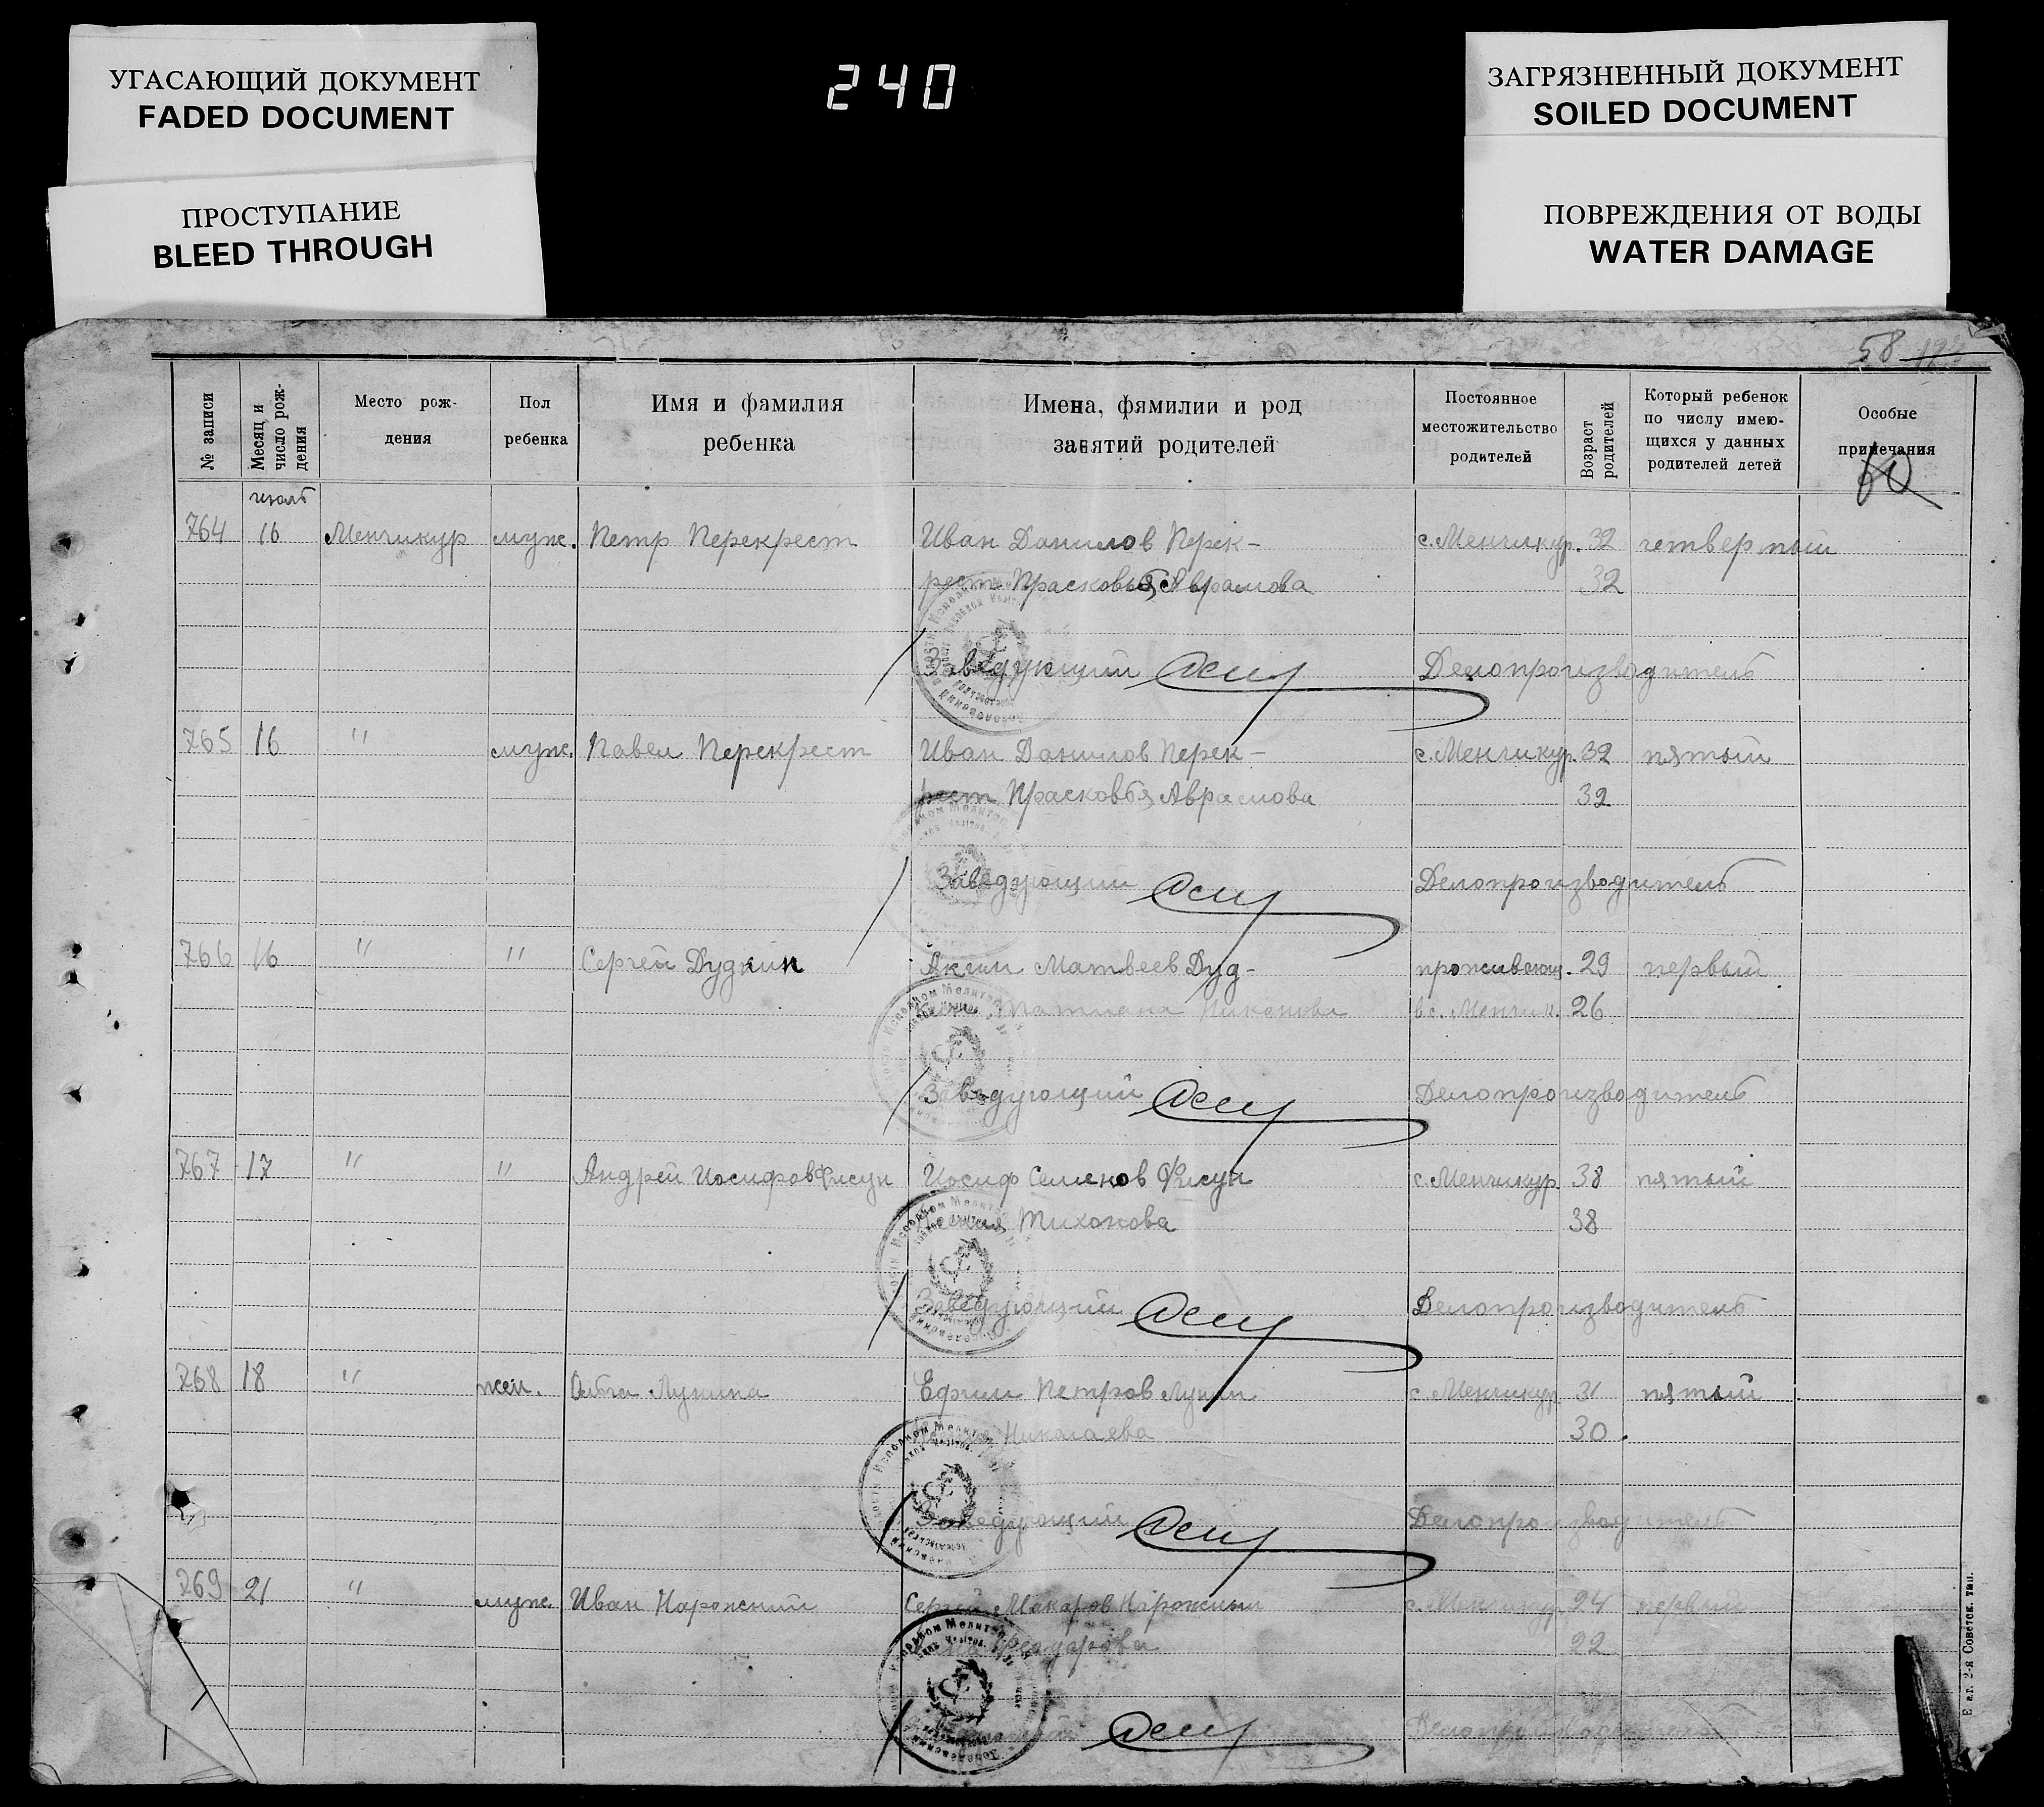 УГАСАЮЩИЙ ДОКУМЕНТ
FADED DOCUMENT
ПРОСТУПАНИЕ
BLEED THROUGH
240
ЗАГРЯЗНЕННЫЙ ДОКУМЕНТ
SOILED DOCUMENT
ПОВРЕЖДЕНИЯ ОТ ВОДЫ
WATER DAMAGE
58
№ записи
Месяц и число рож-дения
Место рож-дения
Пол ребенка
Имя и фамилия ребенка
Имена, фямилии и род занятий родителей
Постоянное местожительство родителей
Возраст родителей
Который ребенок по числу имею-щихся у данных родителей детей
Особые примечания
60
июль
764 16 Менчикур муж. Петр Перекрест Иван Данилов Перек- с. Менчикур. 32 четвертый
рест Прасковья Аврамова 32
Заведующий Делопроизводитель
765 16 " муж. Павел Перекрест Иван Данилов Перек- с. Менчикур. 32 пятый
рест Прасковья Аврамова 32
Заведующий Делопроизводитель
766 16 " " Сергей Дудкин Аким Матвеев Дуд- проживающ. 29 первый
кин, Татиана в с. Менчик. 26
Заведующий Делопроизводитель
767 17 " " Андрей Иосифов Фисун Иосиф Семенов Фисун с. Менчикур. 38 пятый
Тихонова 38
Заведующий Делопроизводитель
768 18 " жен. Ольга Лунина Ефим Петров Лунин с. Менчикур. 31 пятый
Николаева 30.
Заведующий Делопроизводитель
769 21 " муж. Иван Нарожний Сергей Макаров Нарожний с. Менчикур. 24 первый
22
Делопроизводитель
2-я Советск. тип.